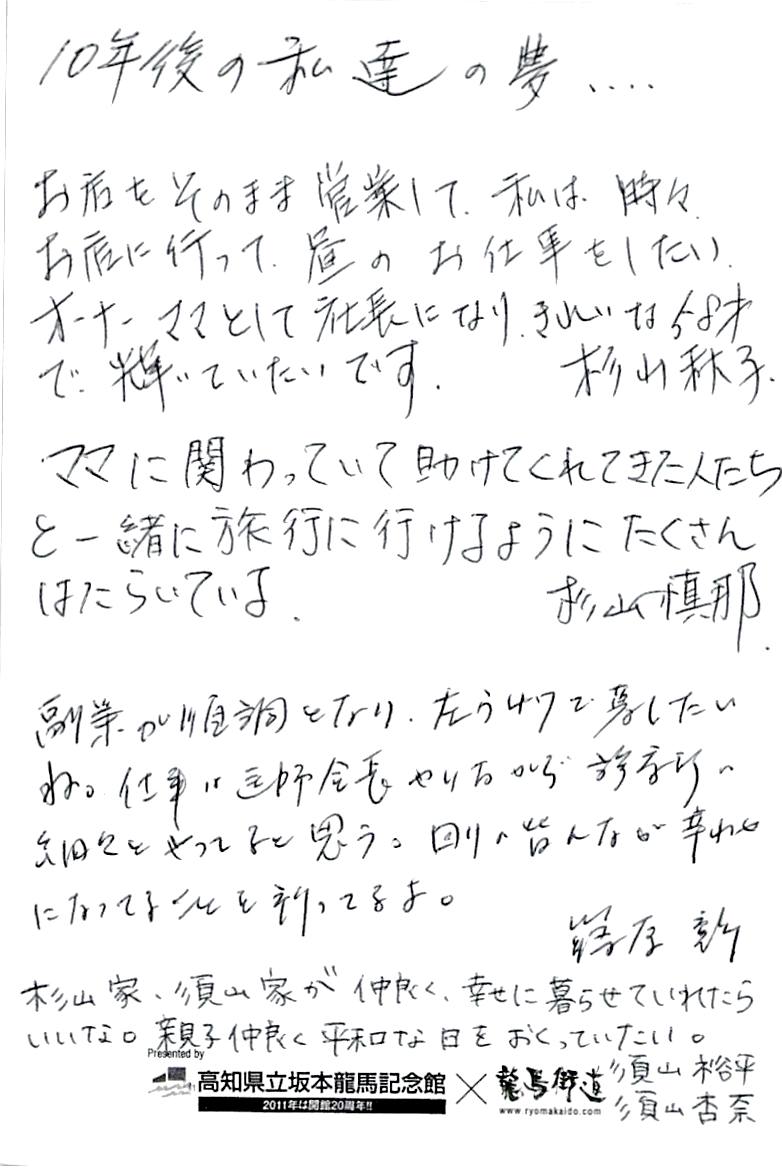 10年後の私達の夢....
お店をそのまま営業して、私は、時々、
お店に行って、昼のお仕事をしたい、
オーナーママとして社長になり、きれいな58才
で、輝いていたいです。 杉山秋子.
ママに関わっていて助けてくれてきた人たち
と一緒に旅行に行けるようにたくさん
はたらいている. 杉山慎那.
副業が順調となり、左うちわで暮したい
ね。仕事は医師会長やりながら
細々とやってると思う。回りの皆んなが幸わせ
になってる事を祈ってるよ。
杉山家、須山家が仲良く、幸せに暮らせていれたら
いいな。親子仲良く平和な日をおくっていたい。
須山裕平
須山杏奈
Presented by
高知県立坂本龍馬記念館×龍馬街道
2011年は開館20周年!! www.ryomakaido.com